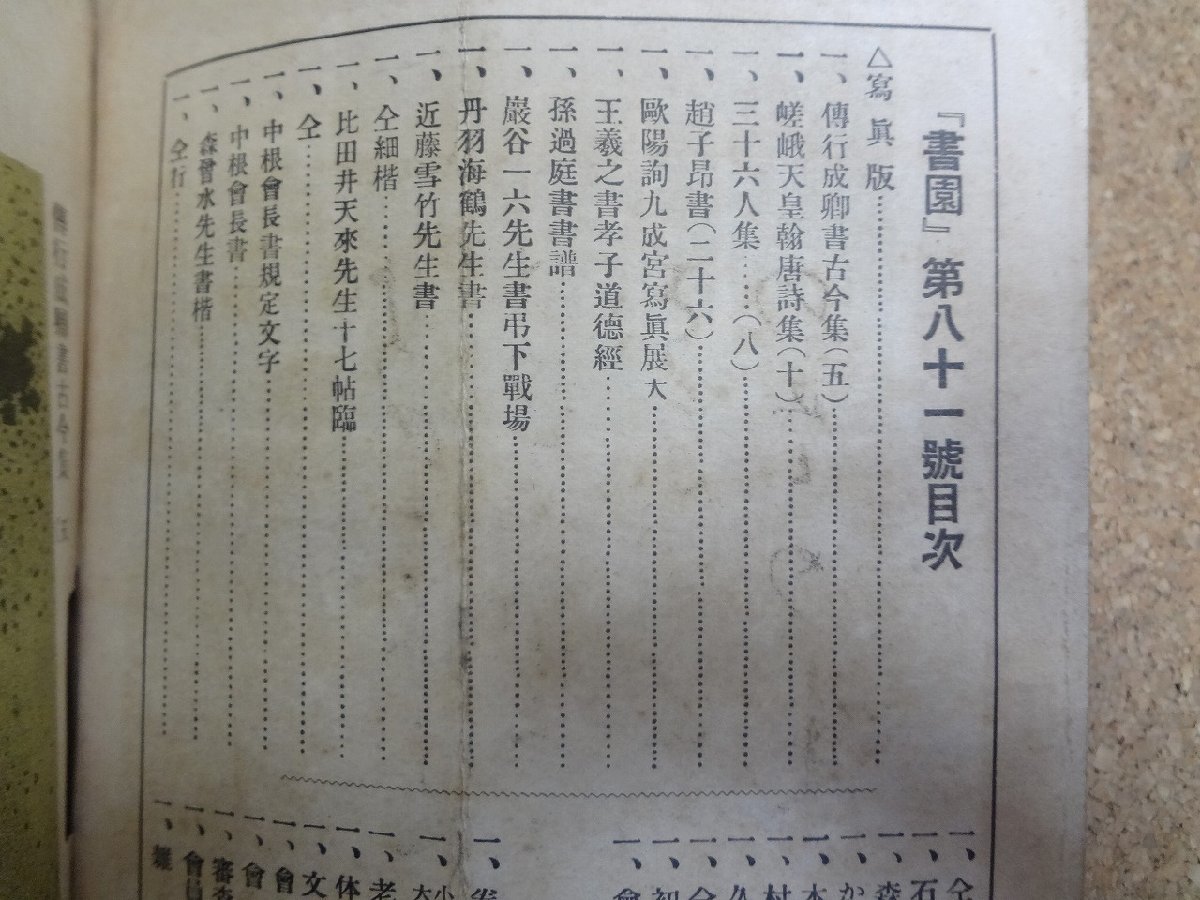 『書園』第八十一號目次
△寫眞版
一、傳行成卿書古今集(五)
一、嵯峨天皇翰唐詩集(十)
一、三十六人集(八)
一、趙子昂書(二十六)
一、歐陽詢九成宮寫眞展大
一、王羲之書孝子道德經
一、孫過庭書書譜
一、巖谷一六先生書弔下戰場
一、丹羽海鶴先生書
一、近藤雪竹先生書
一、仝細楷
一、比田井天來先生十七帖臨
一、仝
一、中根會長書規定文字
一、中根會長書
一、森曾水先生書楷
一、仝行
一、仝
一、石
一、森
一、か
一、本
一、村
一、久
一、會
一、老
一、体
一、文
一、會
一、會
一、審査
一、會員
一、雜
書古今集 五